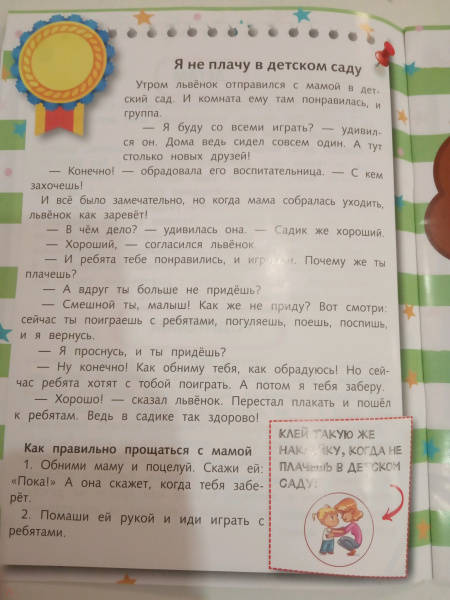 Я не плачу в детском саду
Утром львёнок отправился с мамой в дет-
ский сад. И комната ему там понравилась, и
группа.
— Я буду со всеми играть? — удивил-
ся он. Дома ведь сидел совсем один. А тут
столько новых друзей!
— Конечно! — обрадовала его воспитательница. — С кем
захочешь!
И всё было замечательно, но когда мама собралась уходить,
львёнок как заревёт!
— В чём дело? — удивилась она. — Садик же хороший.
— Хороший, — согласился львёнок.
— И ребята тебе понравились, и игрушки. Почему же ты
плачешь?
— А вдруг ты больше не придёшь?
— Смешной ты, малыш! Как же не приду? Вот смотри:
сейчас ты поиграешь с ребятами, погуляешь, поешь, поспишь,
и я вернусь.
— Я проснусь, и ты придёшь?
— Ну конечно! Как обниму тебя, как обрадуюсь! Но сей-
час ребята хотят с тобой поиграть. А потом я тебя заберу.
— Хорошо! — сказал львёнок. Перестал плакать и пошёл
к ребятам. Ведь в садике так здорово!
Как правильно прощаться с мамой
1. Обними маму и поцелуй. Скажи ей:
«Пока!» А она скажет, когда тебя забе-
рёт.
2. Помаши ей рукой и иди играть с
ребятами.
КЛЕЙ ТАКУЮ ЖЕ
НАКЛЕЙКУ, КОГДА НЕ
ПЛАЧЕШЬ В ДЕТСКОМ
САДУ!